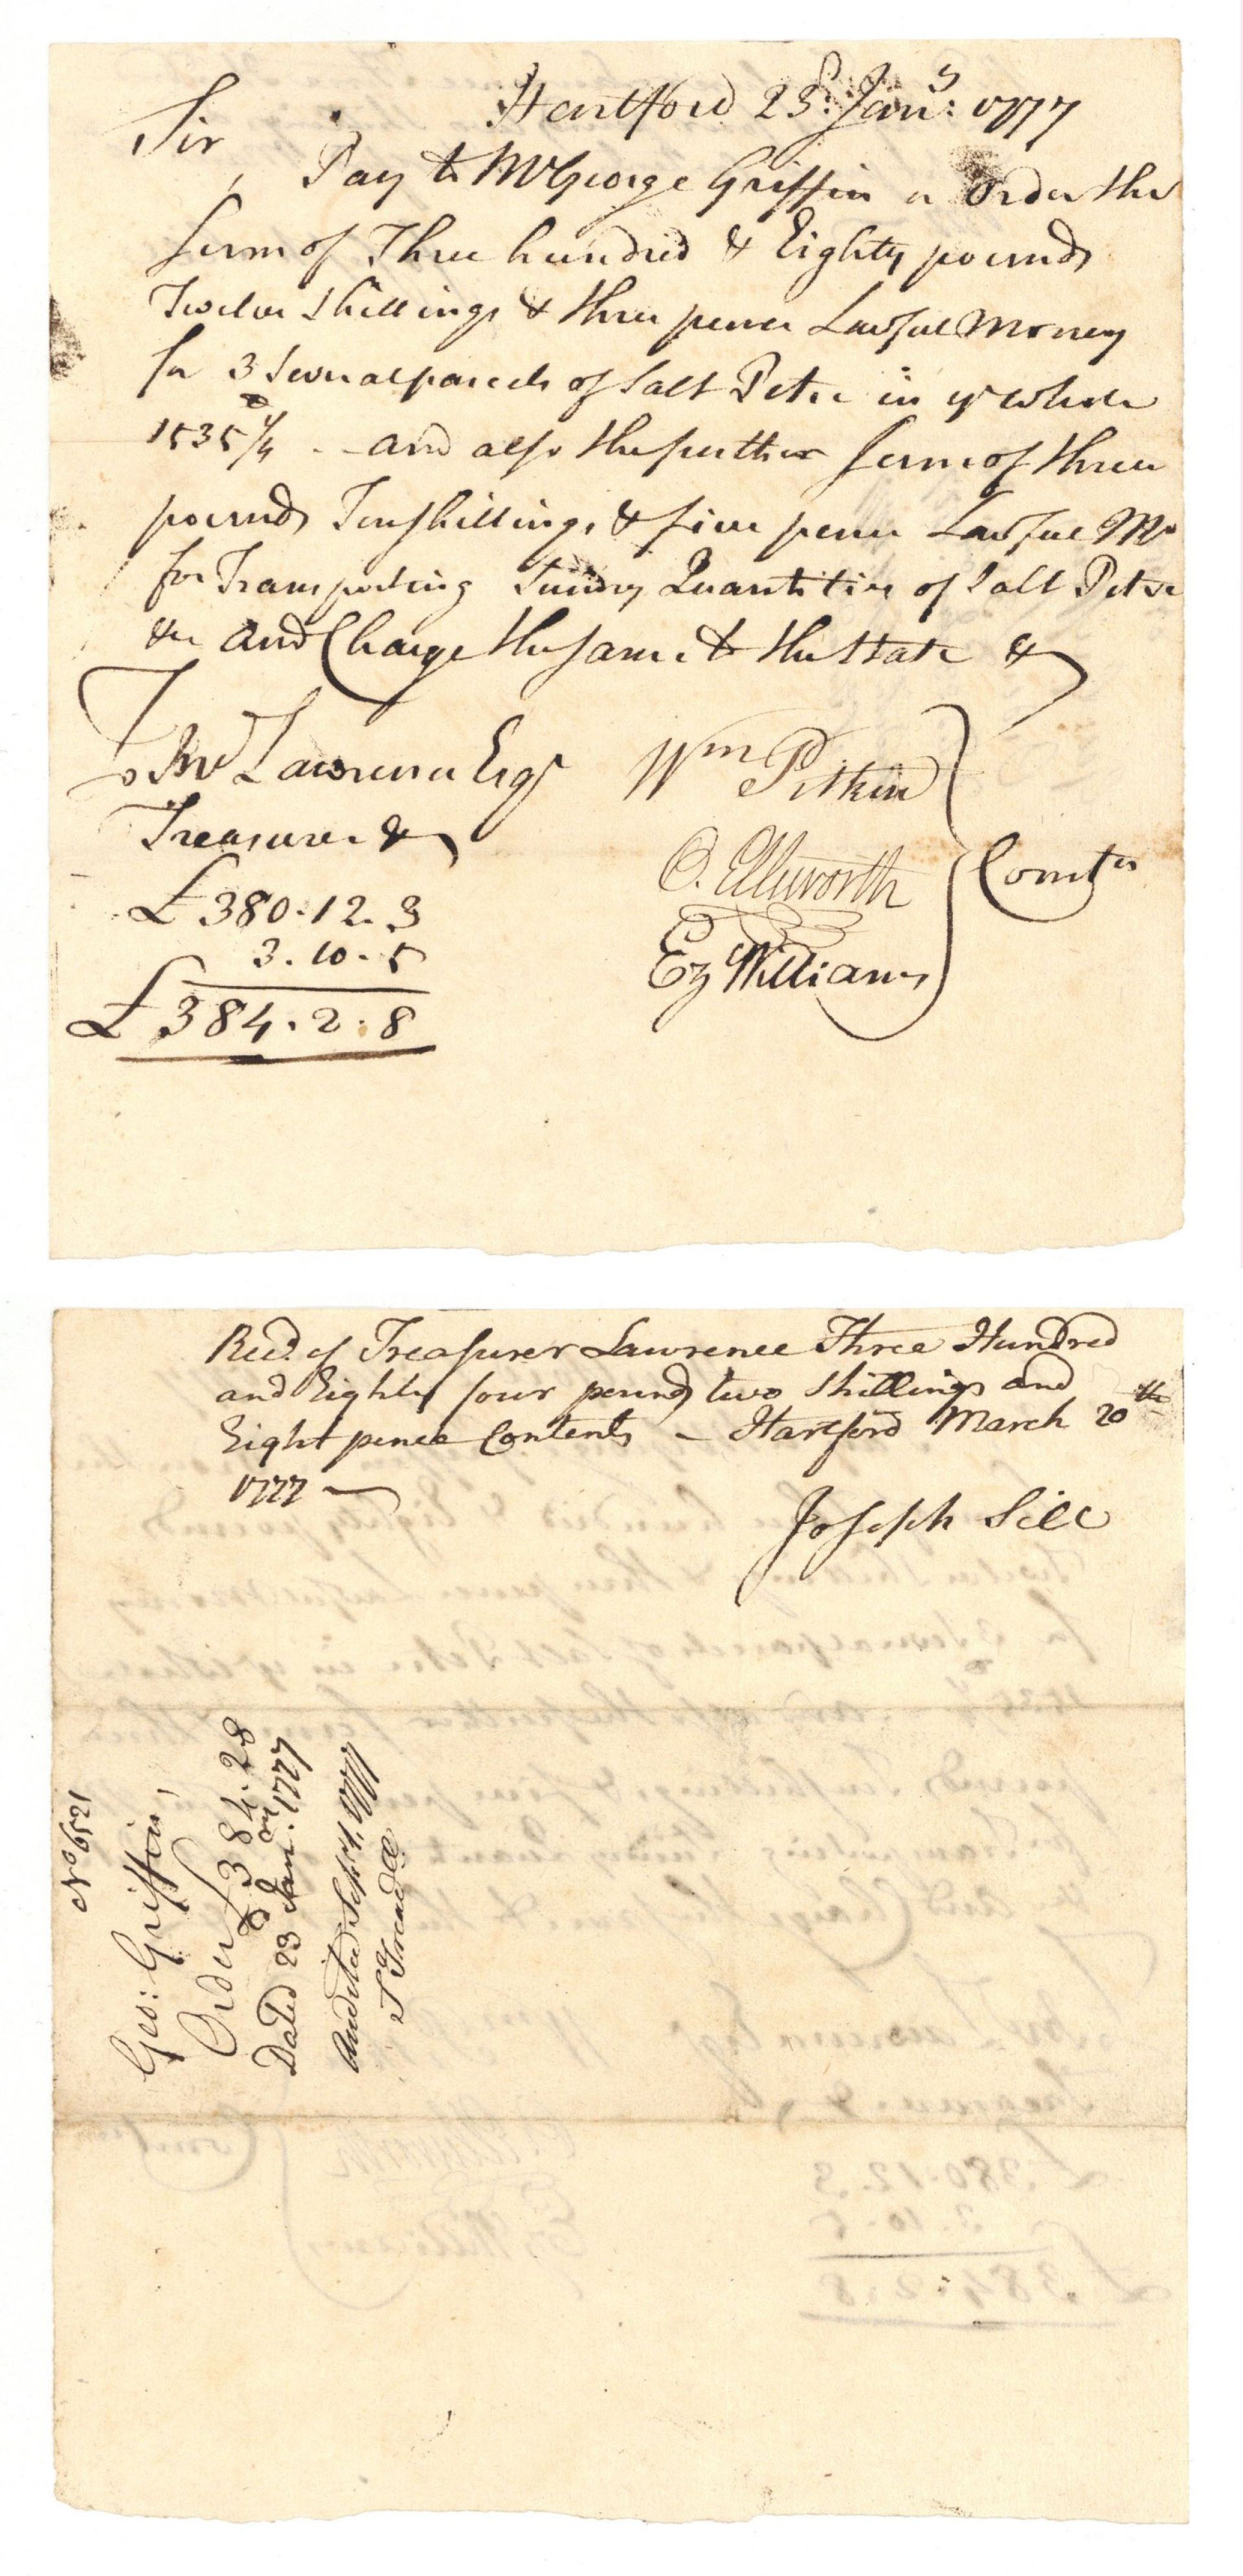 Hartford 23d. Jany: 1777
Sir,
Pay to Mr George Griffin or Order the
Sum of Three hundred & Eighty pounds
Twelve Shillings & three pence Lawful Money
for 3 Several parcels of Salt Petre in ye whole
1535 1/4 - and also the further Sum of three
pounds Ten shillings & five pence Lawful Mo
for Transporting Sundry Quantities of Salt Petre
&c and Charge the same to the State &c
To Jno Lawrence Esqr
Treasurer &c
£380.12.3
3.10.5
£384.2.8
Wm Pitkin
O. Ellsworth
Ez Williams
Comtee
Recd. of Treasurer Lawrence Three Hundred
and Eighty four pounds two Shillings and
Eight pence Contents - Hartford March 20th
1777
Joseph Sill
No 6521
Geo: Griffin,
Order £384.2.8
Dated 23d Jany. 1777
Audited Sept. 4, 1777
J Treadwell